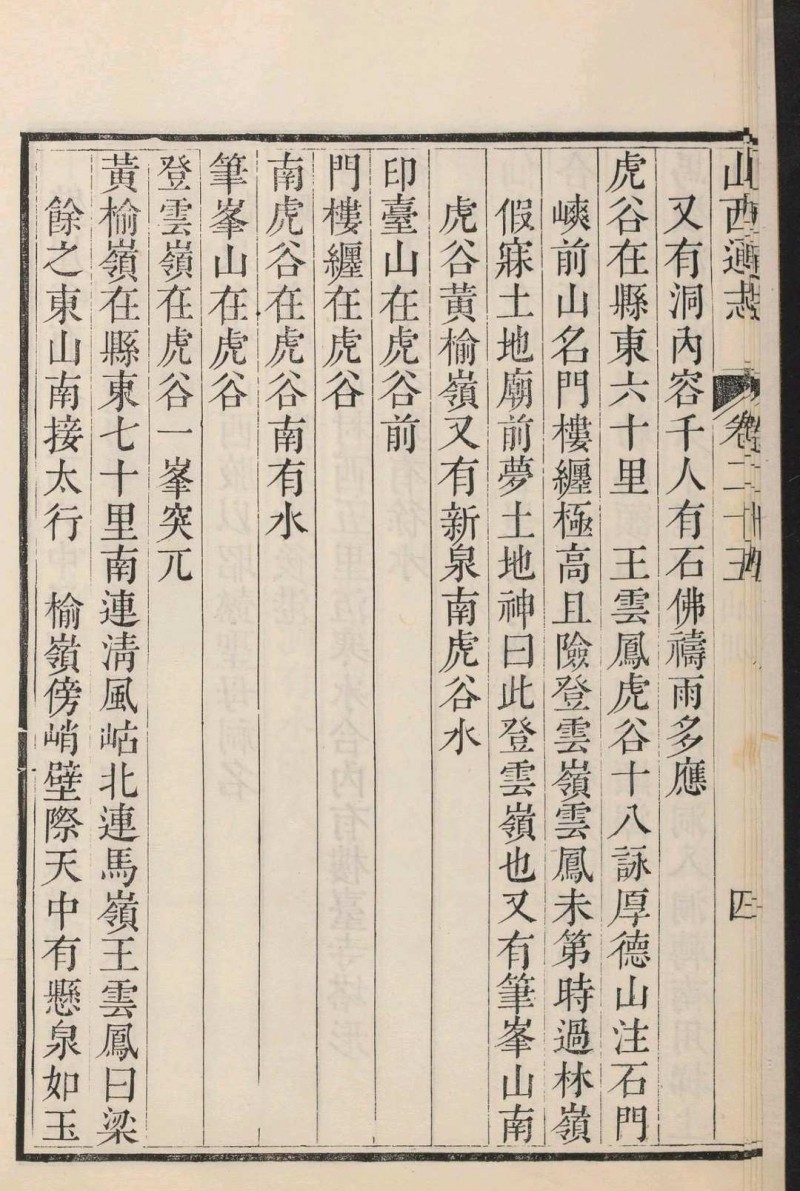 山西通志 卷二十五 四
又有洞內容千人有石佛禱雨多應
虎谷在縣東六十里 王雲鳳虎谷十八詠厚德山注石門
峽前山名門樓纏極高且險登雲嶺雲鳳未第時過林嶺
假寐土地廟前夢土地神曰此登雲嶺也又有筆峯山南
虎谷黃榆嶺又有新泉南虎谷水
印臺山在虎谷前
門樓纏在虎谷
南虎谷在虎谷南有水
筆峯山在虎谷
登雲嶺在虎谷一峯突兀
黃榆嶺在縣東七十里南連清風岵北連馬嶺王雲鳳曰梁
餘之東山南接太行 榆嶺傍峭壁際天中有懸泉如玉